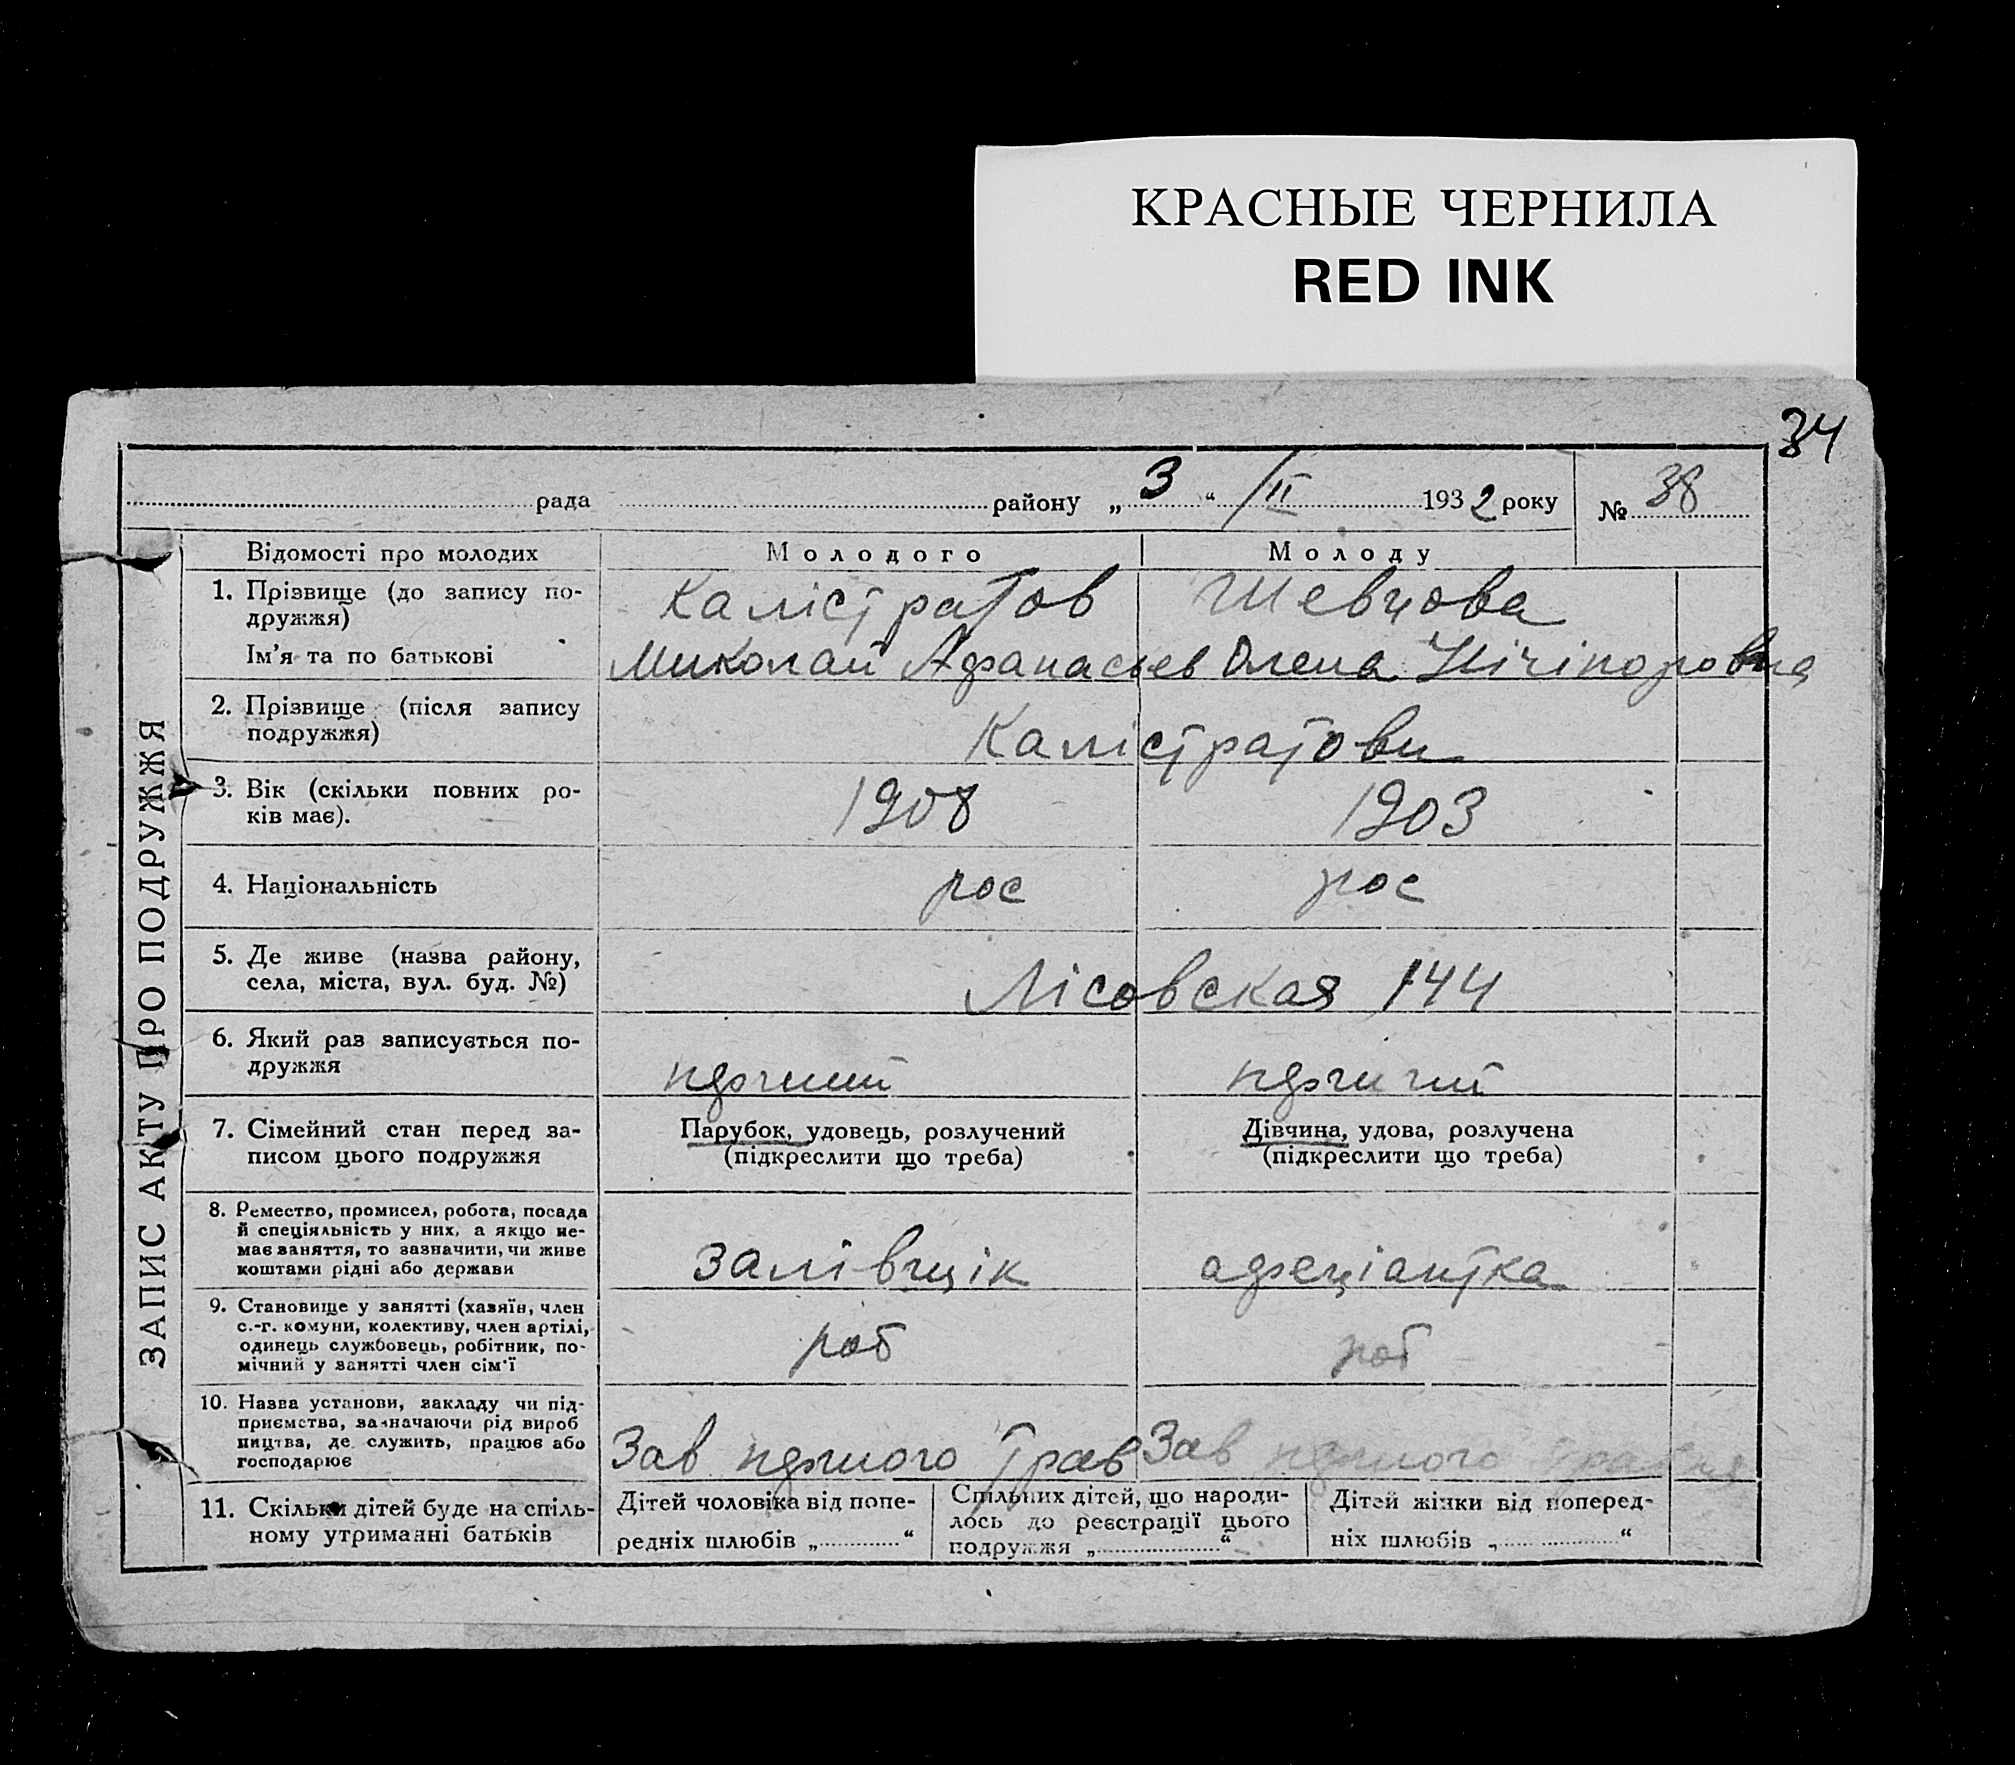 КРАСНЫЕ ЧЕРНИЛА
RED INK
34
рада району „ 3 “ /II 1932 року № 38
ЗАПИС АКТУ ПРО ПОДРУЖЖЯ
Відомості про молодих Молодого Молоду
1. Прізвище (до запису по-
дружжя) Калістратов Шевцова
Ім’я та по батькові Миколай Афанасьев Олена Нічіпоровна
2. Прізвище (після запису
подружжя) Калістратови
3. Вік (скільки повних ро-
ків має). 1908 1903
4. Національність рос рос
5. Де живе (назва району,
села, міста, вул. буд. №) Лісовская 144
6. Який раз записується по-
дружжя
7. Сімейний стан перед за-
писом цього подружжя
Парубок, удовець, розлучений
(підкреслити що треба)
Дівчина, удова, розлучена
(підкреслити що треба)
8. Ремество, промисел, робота, посада
й спеціяльність у них, а якщо не-
має заняття, то зазначити, чи живе
коштами рідні або держави
залівщік
9. Становище у занятті (хазяїн, член
с.-г. комуни, колективу, член артілі,
одинець службовець, робітник, по-
мічний у занятті член сім’ї
роб роб
10. Назва установи, закладу чи під-
приємства, зазначаючи рід вироб
ництва, де служить, працює або
господарює
Зав Трав Зав
11. Скільки дітей буде на спіль-
ному утриманні батьків
Дітей чоловіка від попе-
редніх шлюбів „ “
Спільних дітей, що народи-
лось до реєстрації цього
подружжя „ “
Дітей жінки від поперед-
ніх шлюбів „ “